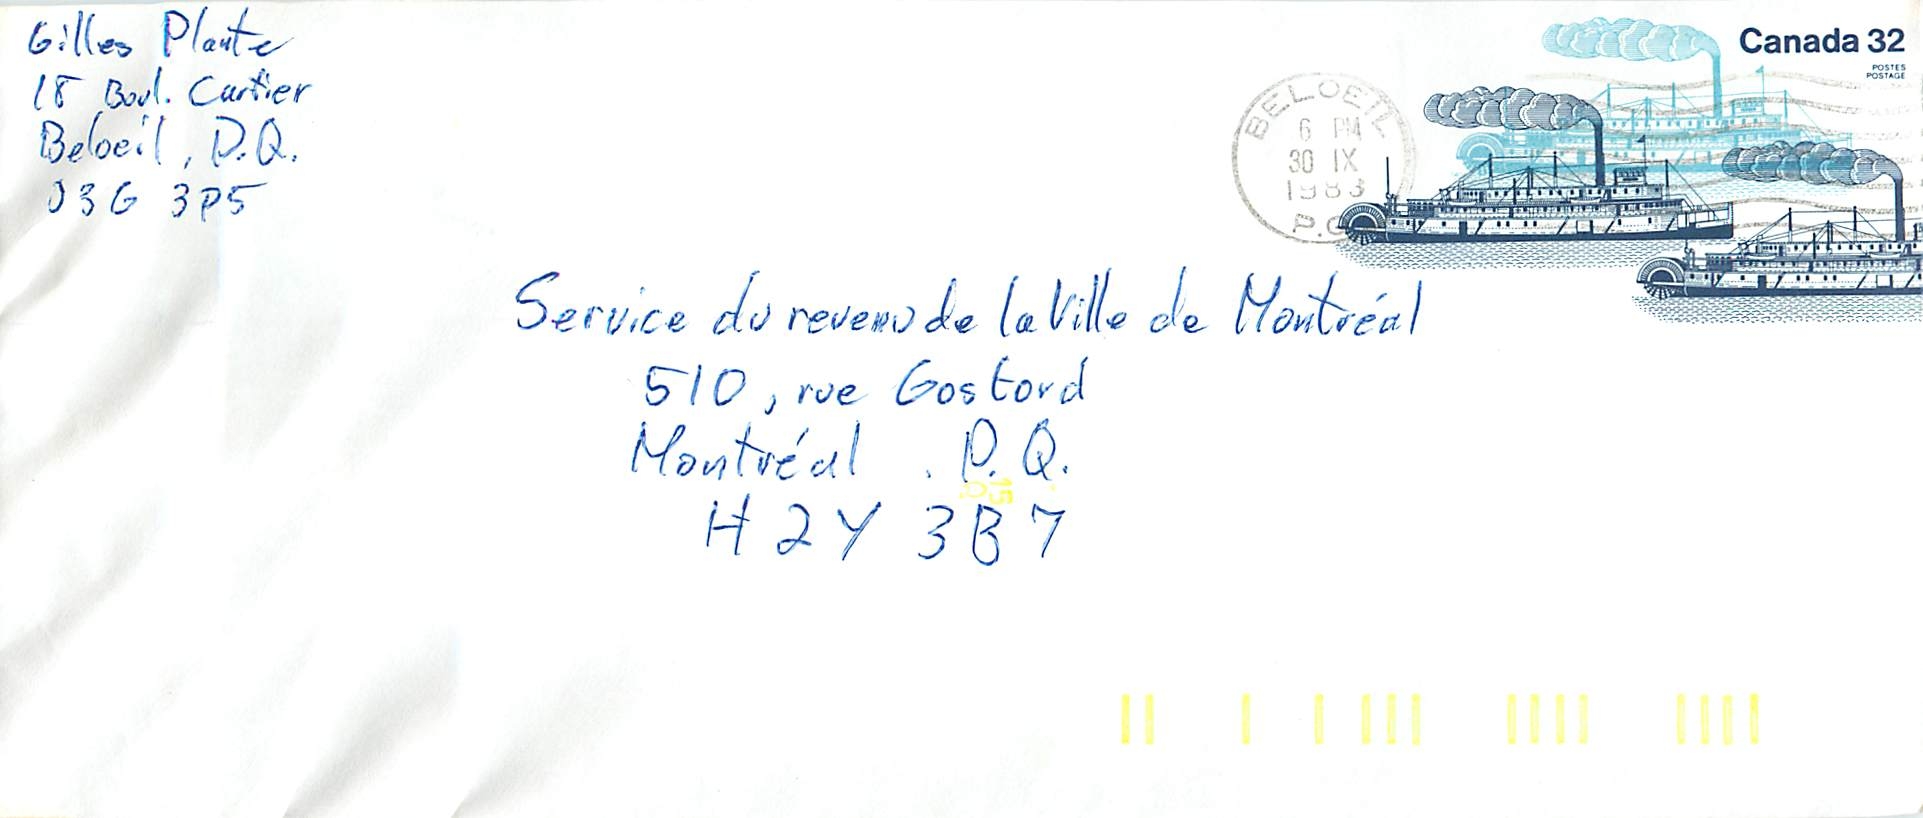 Gilles Plante
18 Boul. Cartier
Beloeil, P.Q.
J3G 3P5
Canada 32
POSTES
POSTAGE
BELOEIL
6 PM
30 IX
1983
P.Q.
Service du revenu de la Ville de Montréal
510, rue Gosford
Montréal . P.Q.
H2Y 3B7
15